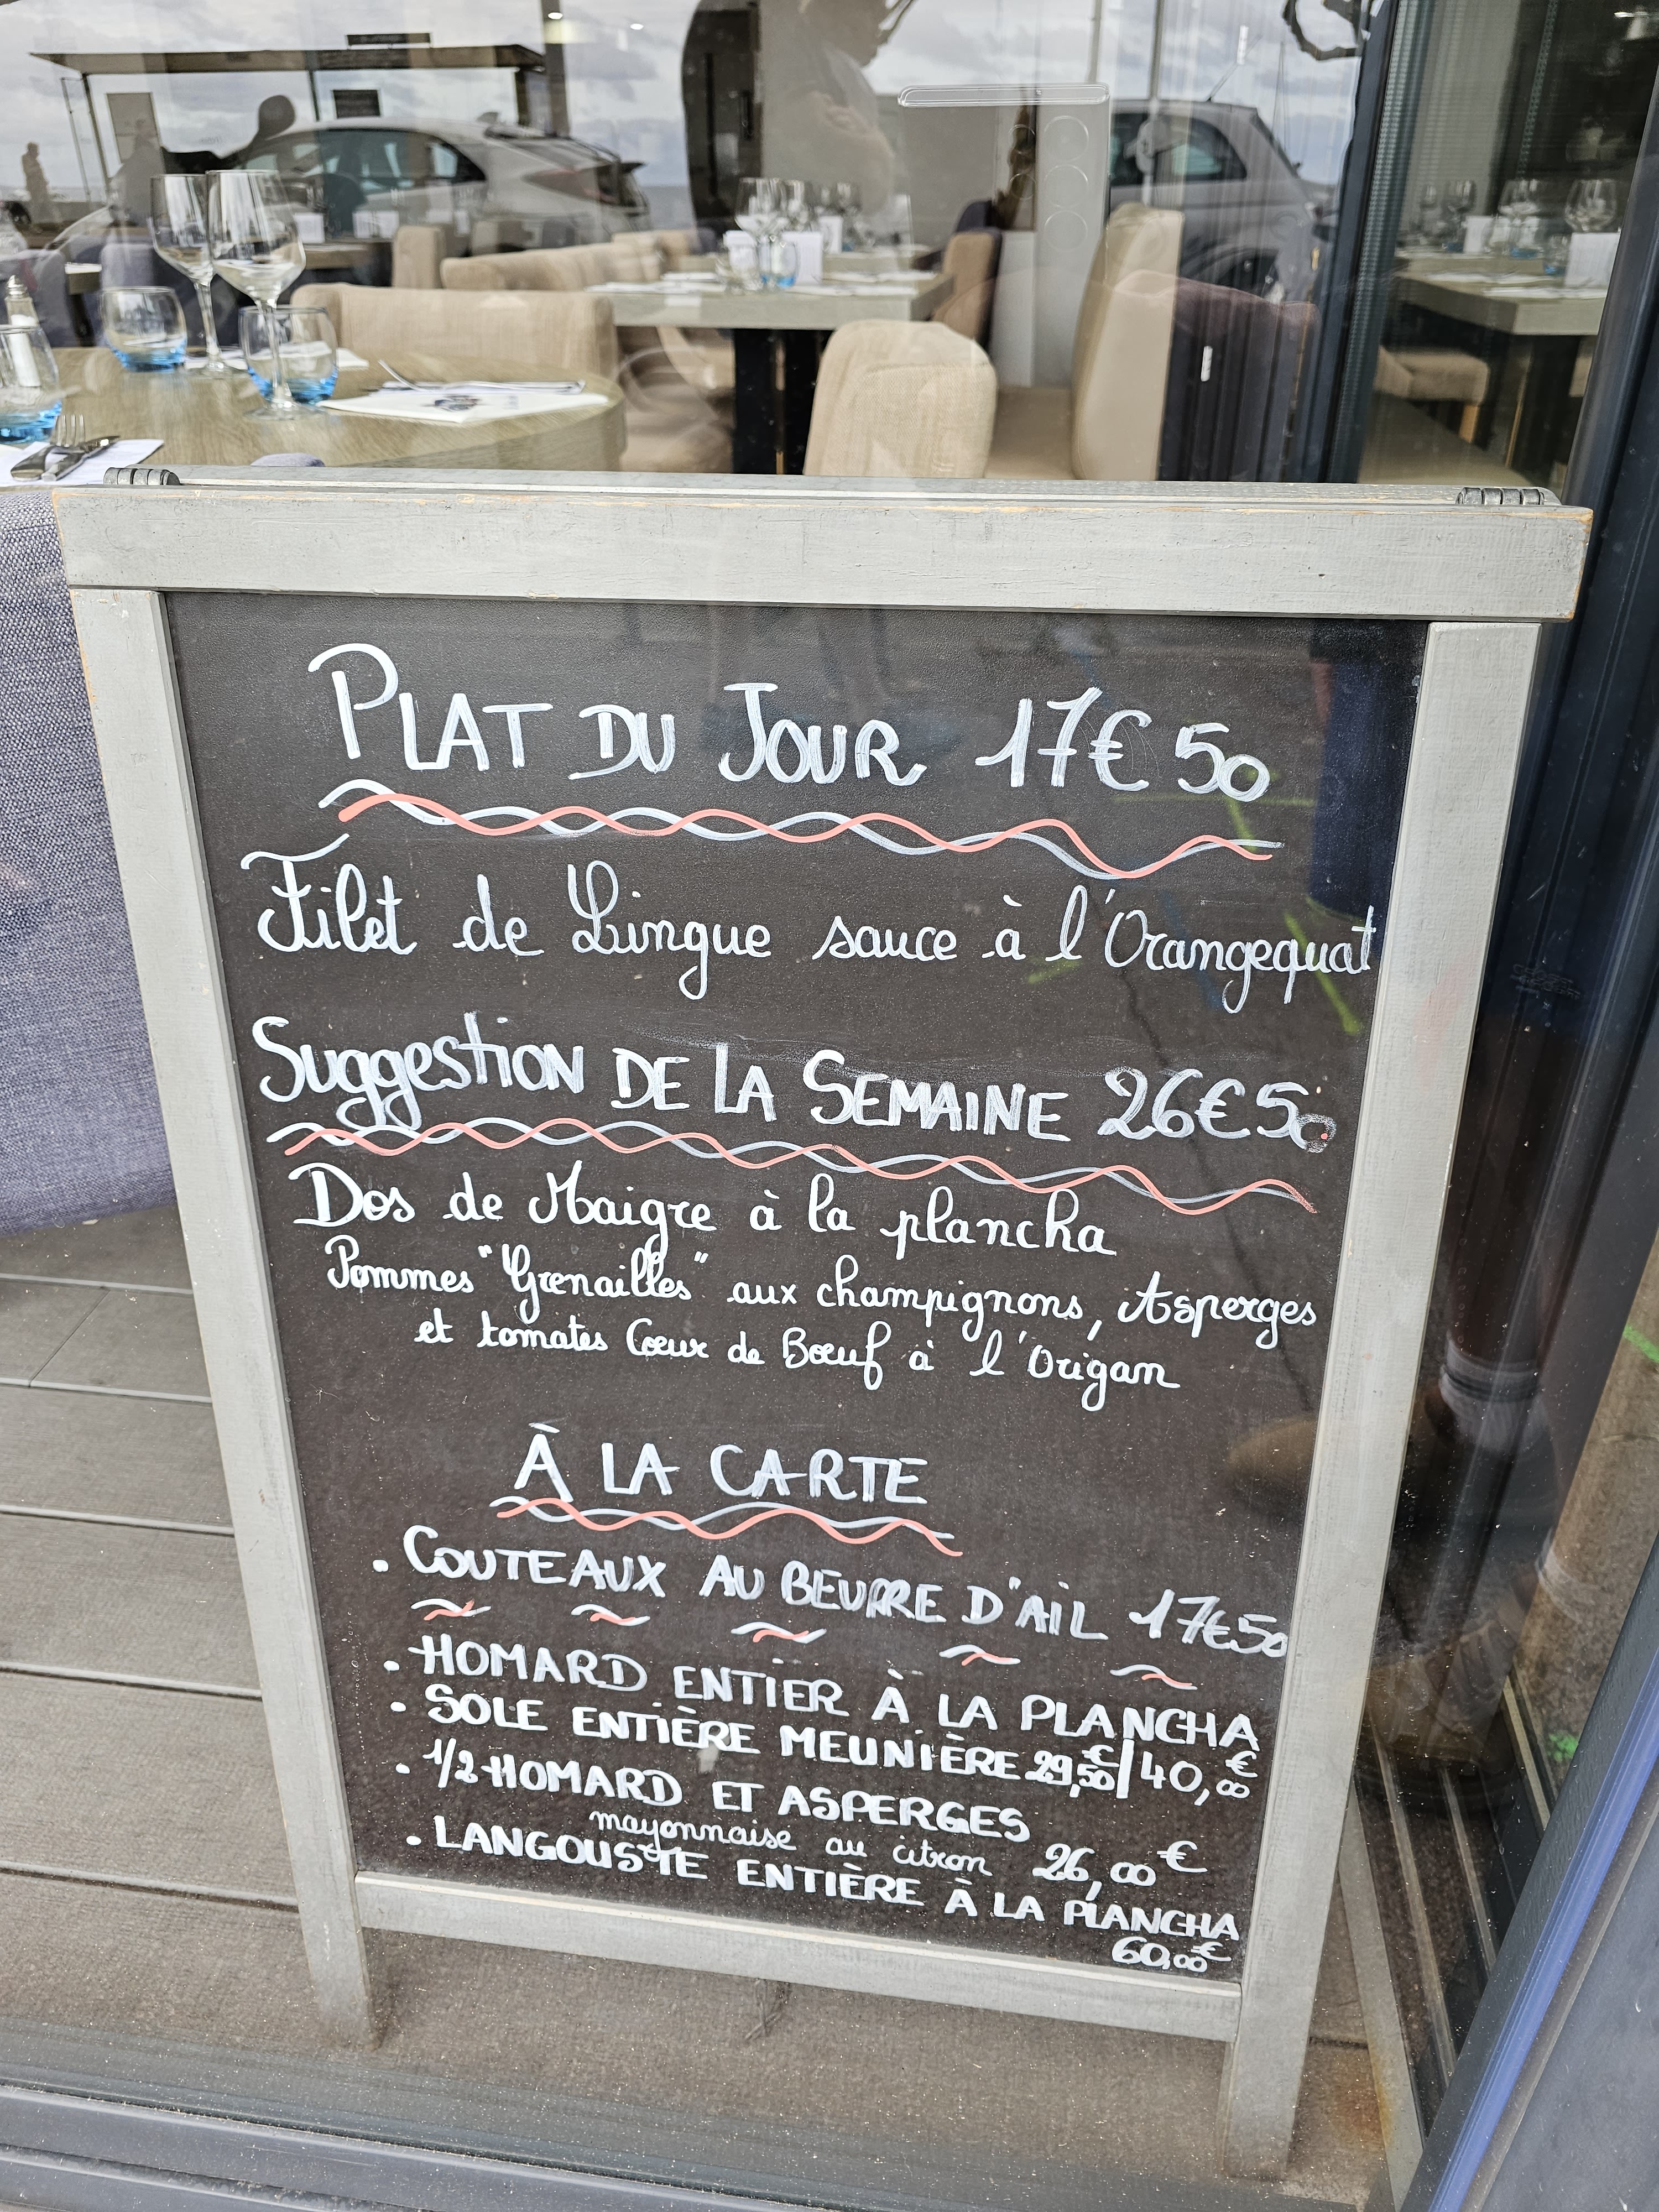 PLAT DU JOUR 17€50
Filet de Lingue sauce à l'Orangequat
Suggestion DE LA SEMAINE 26€50
Dos de Maigre à la plancha
Pommes "Grenailles" aux champignons, Asperges
et tomates Cœur de Bœuf à l'Origan
À LA CARTE
. COUTEAUX AU BEURRE D'AIL 17€50
. HOMARD ENTIER À LA PLANCHA
. SOLE ENTIÈRE MEUNIÈRE 29,50€/40,00€
. 1/2 HOMARD ET ASPERGES
mayonnaise au citron 26,00€
. LANGOUSTE ENTIÈRE À LA PLANCHA
60,00€